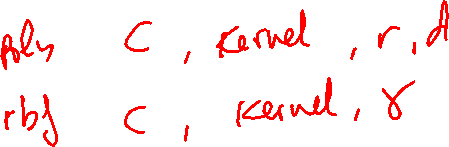 Poly C, Kernel, r, d
rbf C, Kernel, γ